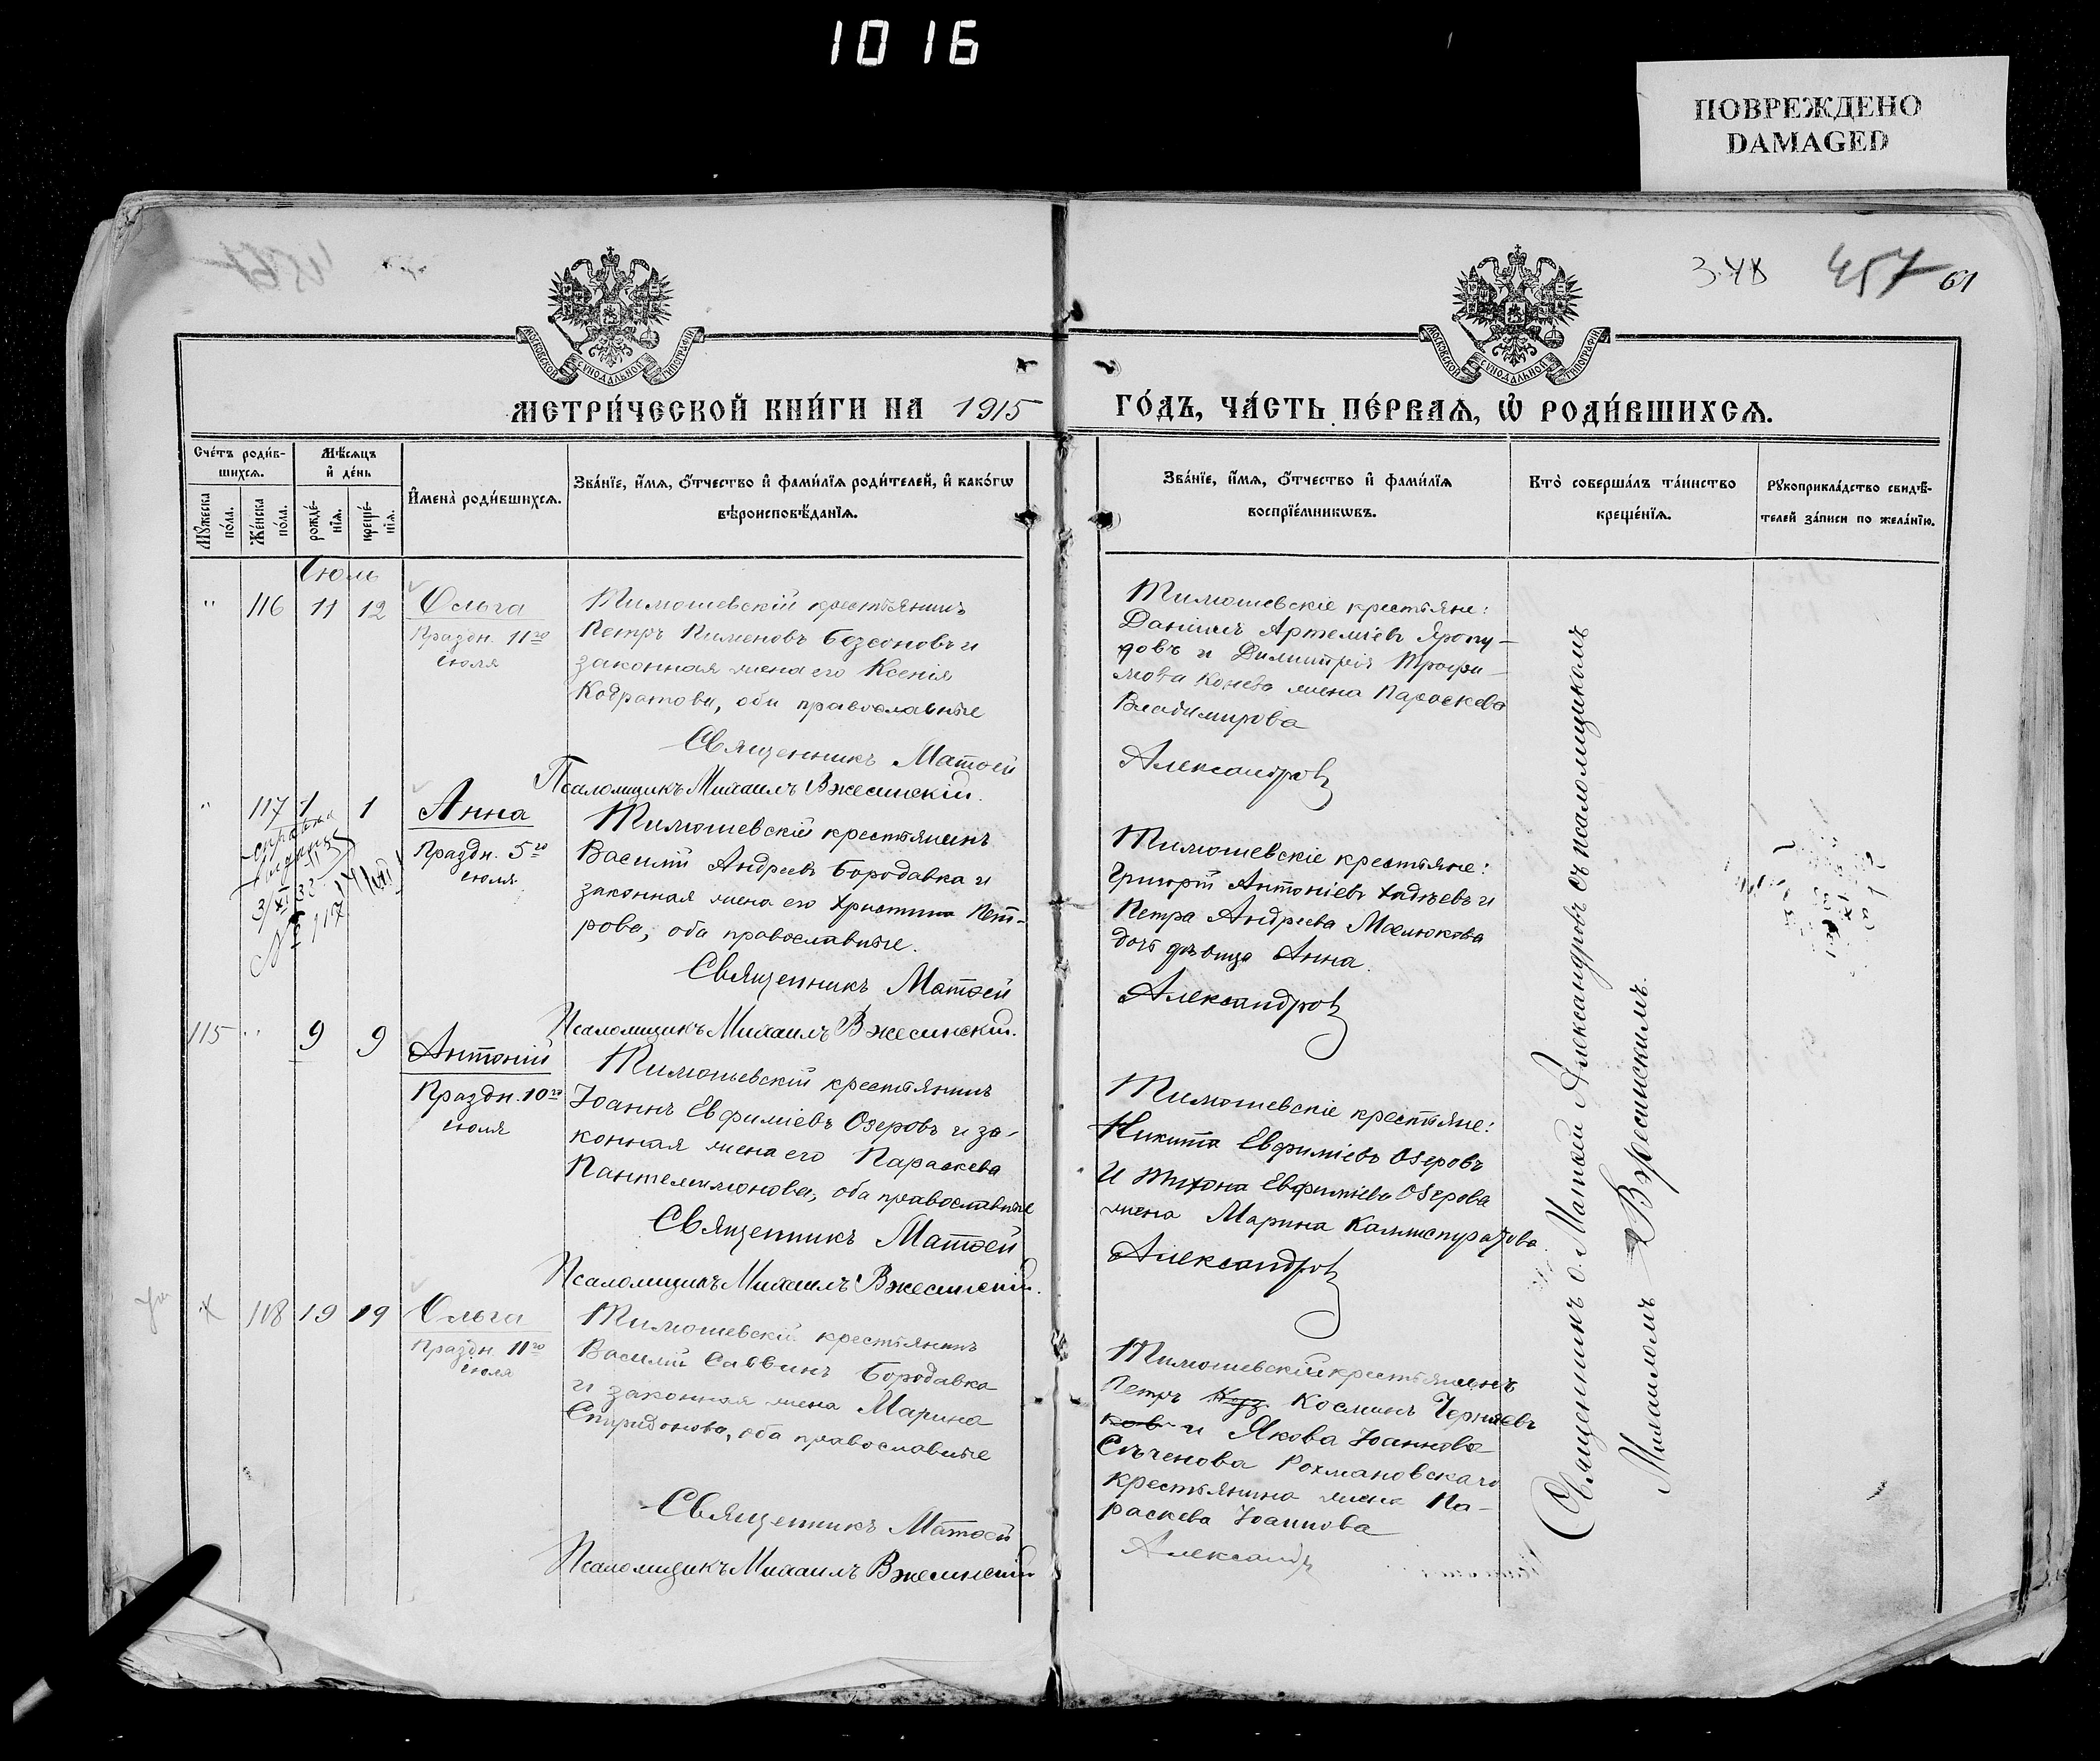 1016
ПОВРЕЖДЕНО
DAMAGED
3.78
457
61
МОСКОВСКОЙ СѴНОДАЛЬНОЙ ТИПОГРАФІИ
МОСКОВСКОЙ СѴНОДАЛЬНОЙ ТИПОГРАФІИ
МЕТРИ́ЧЕСКОЙ КНИ́ГИ НА 1915 ГО́ДЪ, ЧА́СТЬ ПЕ́РВАѦ, Ѡ РОДИ́ВШИХСѦ.
Сче́тъ роди́в-
шихсѧ.
Мѣ́сѧцъ
и҆ де́нь
Мꙋ́жеска
по́ла.
Же́нска
по́ла.
рожде́-
нїѧ.
креще́-
нїѧ.
И҆мена̀ роди́вшихсѧ.
Зва́нїе, и҆́мѧ, ѻ҆́тчество и҆ фами́лїѧ роди́телей, и҆ како́гѡ
вѣроисповѣ́данїѧ.
Зва́нїе, и҆́мѧ, ѻ҆́тчество и҆ фами́лїѧ
воспрїе́мникѡвъ.
Кто̀ соверша́лъ та́инство
креще́нїѧ.
Рꙋкоприкла́дство свидѣ́-
телей за́писи по жела́нїю.
Іюль
" 116 11 12 Ольга
Праздн. 11го
іюля
Тимошевскій крестьянинъ
Петръ Пименовъ Безсоновъ и
законная жена его Ксенія
Кодратова, оба православные
Священникъ Матѳей
Псаломщикъ Михаилъ Вжесинскій.
Тимошевскіе крестьяне:
Даніилъ Артеміевъ Яропу-
довъ и Димитрія Трофи-
мова Конева жена Параскева
Владимирова
Александровъ
" 117 1 1 Анна
Праздн. 5го
іюля
справка
выдана
3/XI 32
№ 117
Тимошевскій крестьянинъ
Василій Андреевъ Бородавка и
законная жена его Христина Пет-
рова, оба православные.
Священникъ Матѳей
Псаломщикъ Михаилъ Вжесинскій.
Тимошевскіе крестьяне:
Григорій Антоніевъ Хаджевъ и
Петра Андреева Маслюкова
дочь дѣвица Анна.
Александровъ
115 " 9 9 Антоній
Праздн. 10го
іюля
Тимошевскій крестьянинъ
Іоаннъ Евфиміевъ Озеровъ и за-
конная жена его Параскева
Пантелимонова, оба православные
Священникъ Матѳей
Псаломщикъ Михаилъ Вжесинскій.
Тимошевскіе крестьяне:
Никита Евфиміевъ Озеровъ
и Тихона Евфиміева Озерова
жена Марина
Александровъ
118 19 19 Ольга
Праздн. 11го
іюля
Тимошевскій крестьянинъ
Василій Саввинъ Бородавка
и законная жена Марина
Спиридонова, оба православные
Священникъ Матѳей
Псаломщикъ Михаилъ Вжесинскій
Тимошевскій крестьянинъ
Петръ Косминъ Черняевъ
ковъ и Якова Іоаннова
Сѣченова Рохмановскаго
крестьянина жена Па-
раскева Іоаннова
Александръ
Священникъ о. Матѳей Александровъ съ псаломщикомъ
Михаиломъ Вжесинскимъ.